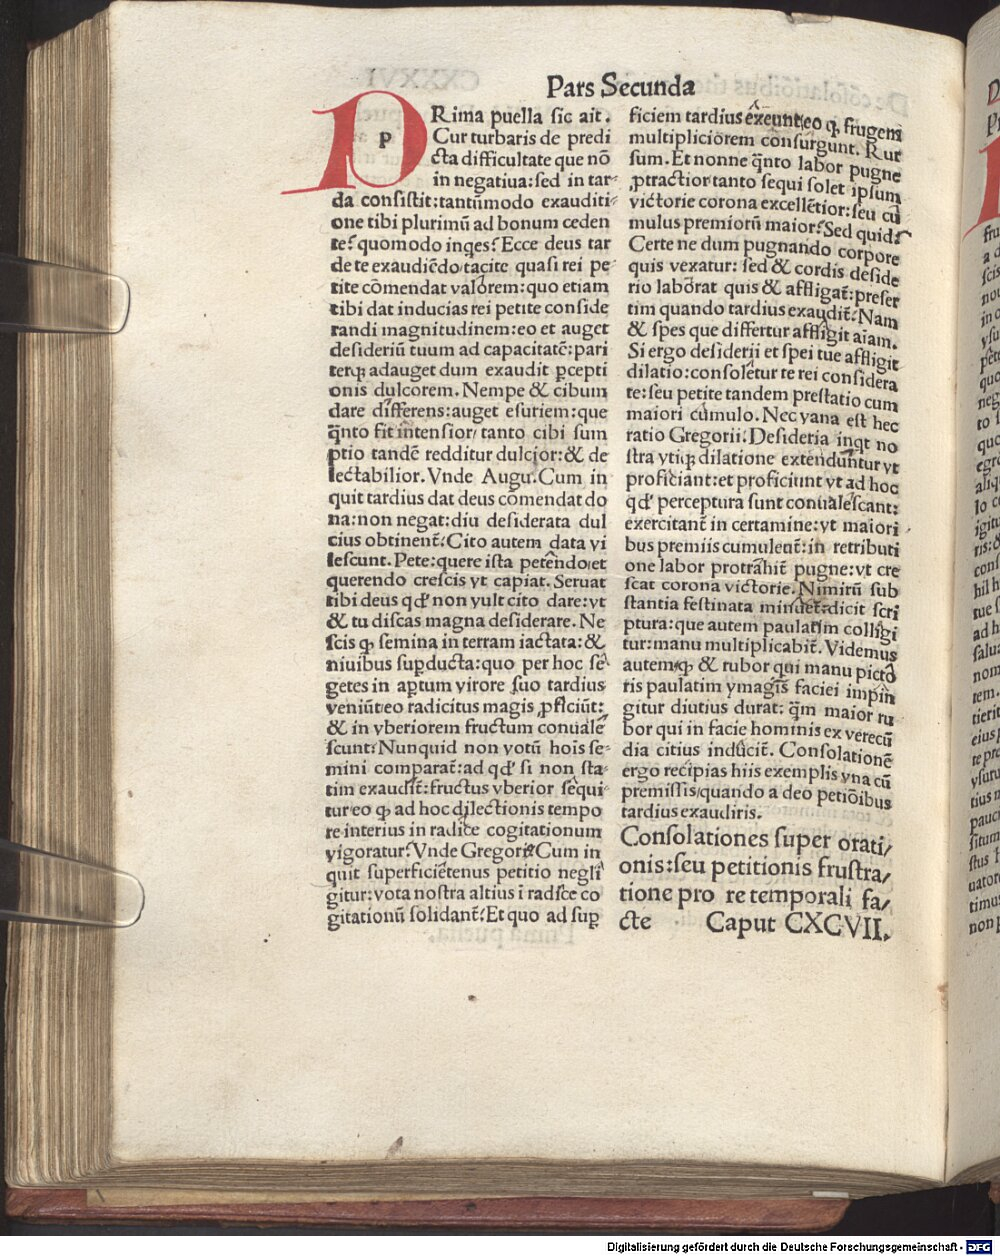 Pars Secunda
PRima puella sic ait.
Cur turbaris de predi
cta difficultate que nō
in negatiua: sed in tar⸗
da consistit: tantūmodo exauditi⸗
one tibi plurimū ad bonum ceden
te? quomodo inqes? Ecce deus tar
de te exaudiēdo/tacite quasi rei pe⸗
tite cōmendat valorem: quo etiam
tibi dat inducias rei petite conside
randi magnitudinem: eo et auget
desideriū tuum ad capacitatē: pari
terqꝫ adauget dum exaudit ꝑcepti
onis dulcorem. Nempe & cibum
dare differens: auget esuriem: que
q̄nto fit intensior/ tanto cibi sum
ptio tandē redditur dulcior: & de
lectabilior. Vnde Augu. Cum in
quit tardius dat deus cōmendat do
na: non negat: diu desiderata dul
cius obtinent̄? Cito autem data vi
lescunt. Pete: quere ista petēndo/et
querendo crescis vt capiat. Seruat
tibi deus qd' non vult cito dare: vt
& tu discas magna desiderare. Ne
scis qꝫ semina in terram iactata: &
niuibus suꝑducta: quo per hoc sē⸗
getes in aꝑtum virore suo tardius
veniūt/eo radicitus magis ꝓficiūt:
& in vberiorem fructum conualē
scunt? Nunquid non votū hois se⸗
mini comparat̄: ad qd' si non sta⸗
tim exaudit̄: fructus vberior sequi⸗
tur eo qꝫ ad hoc dilectionis tempo
re interius in radice cogitationum
vigoratur? Vnde Gregori? Cum in
quit superficiētenus petitio negli
gitur: vota nostra altius ī radice co
gitationū solidant̄? Et quo ad suꝑ
ficiem tardius exeunt/eo qꝫ frugem
multipliciōrem consurgunt. Rur
sum. Et nonne q̄nto labor pugne
ꝓtractior/tanto sequi solet ipsum
victorie corona excellētior: seu cū
mulus premiorū maior? Sed quid?
Certe ne dum pugnando corpore
quis vexatur: sed & cordis deside
rio laborat quis & affligat̄: preser
tim quando tardius exaudit̄? Nam
& spes que differtur affligit aīam.
Si ergo desiderii et spei tue affligit
dilatio: consolētur te rei considera
te: seu petite tandem prestatio cum
maiori cumulo. Nec vana est hec
ratio Gregorii? Desideria inqt no
stra vtiqꝫ dilatione extenduntur vt
proficiant: et proficiunt vt ad hoc
qd' perceptura sunt conualescant:
exercitant̄ in certamine: vt maiori
bus premiis cumulent̄: in retributi
one labor protrahit̄ pugne: vt cre
scat corona victorie. Nimirū sub
stantia festinata minuet̄: dicit scri
ptura: que autem paulatim colligi
tur: manu multiplicabit̄. Videmus
autem/qꝫ & rubor qui manu picto
ris paulatim ymagīs faciei impin
gitur diutius durat: q̄m maior ru
bor qui in facie hominis ex verecū
dia citius inducit̄. Consolationē
ergo recipias hiis exemplis vna cū
premissis/quando a deo petiōibus
tardius exaudiris.
Consolationes super orati/
onis: seu petitionis frustra/
tione pro re temporali fa/
cte Caput CXCVII.
Digitalisierung gefördert durch die Deutsche Forschungsgemeinschaft - DFG